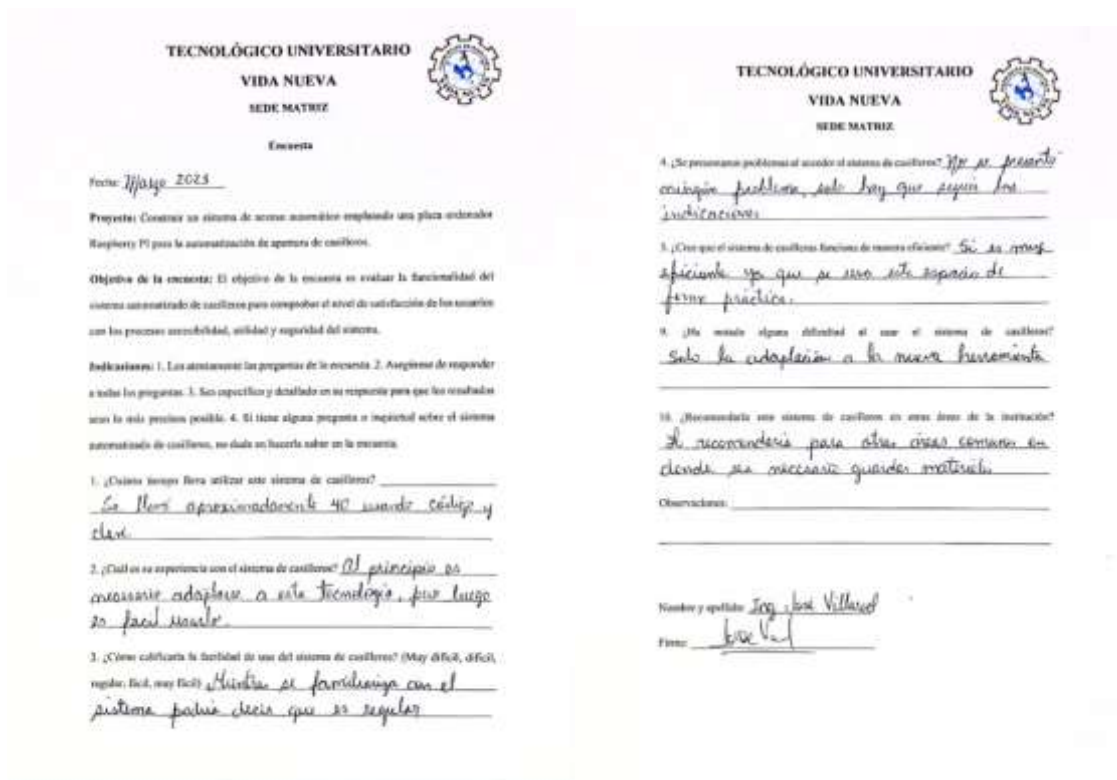 TECNOLÓGICO UNIVERSITARIO
VIDA NUEVA
SEDE MATRIZ
Encuesta
Fecha: Marzo 2023
Proyecto: Construir un sistema de acceso automático empleando una placa ordenador
Raspberry PI para la automatización de apertura de casilleros.
Objetivo de la encuesta: El objetivo de la encuesta es evaluar la funcionalidad del
sistema automatizado de casilleros para comprobar el nivel de satisfacción de los usuarios
con los procesos accesibilidad, utilidad y seguridad del sistema.
Indicaciones: 1. Lea atentamente las preguntas de la encuesta. 2. Asegúrese de responder
a todas las preguntas. 3. Sea específico y detallado en su respuesta para que los resultados
sean lo más precisos posible. 4. Si tiene alguna pregunta o inquietud sobre el sistema
automatizado de casilleros, no dude en hacerla saber en la encuesta.
1. ¿Cuánto tiempo lleva utilizar este sistema de casilleros?
Se llevó aproximadamente 40 usando código y
clave.
2. ¿Cuál es su experiencia con el sistema de casilleros? Al principio es
necesario adaptarse a esta tecnología, pero luego
es facil usarlo.
3. ¿Cómo calificaría la facilidad de uso del sistema de casilleros? (Muy difícil, difícil,
regular, fácil, muy fácil) Mientras se familiariza con el
sistema podria decir que es regular
TECNOLÓGICO UNIVERSITARIO
VIDA NUEVA
SEDE MATRIZ
4. ¿Se presentaron problemas al acceder al sistema de casilleros? No se presentó
ningún problema, solo hay que seguir las
indicaciones
5. ¿Cree que el sistema de casilleros funciona de manera eficiente? Si es muy
eficiente ya que se usa este espacio de
forma práctica.
9. ¿Ha notado alguna dificultad al usar el sistema de casilleros?
Solo la adaptación a la nueva herramienta
10. ¿Recomendaría este sistema de casilleros en otras áreas de la institución?
recomendaria para otras areas comunes en
donde sea necesario guardar material.
Observaciones:
Nombre y apellido: Ing. José Villarod
Firma: